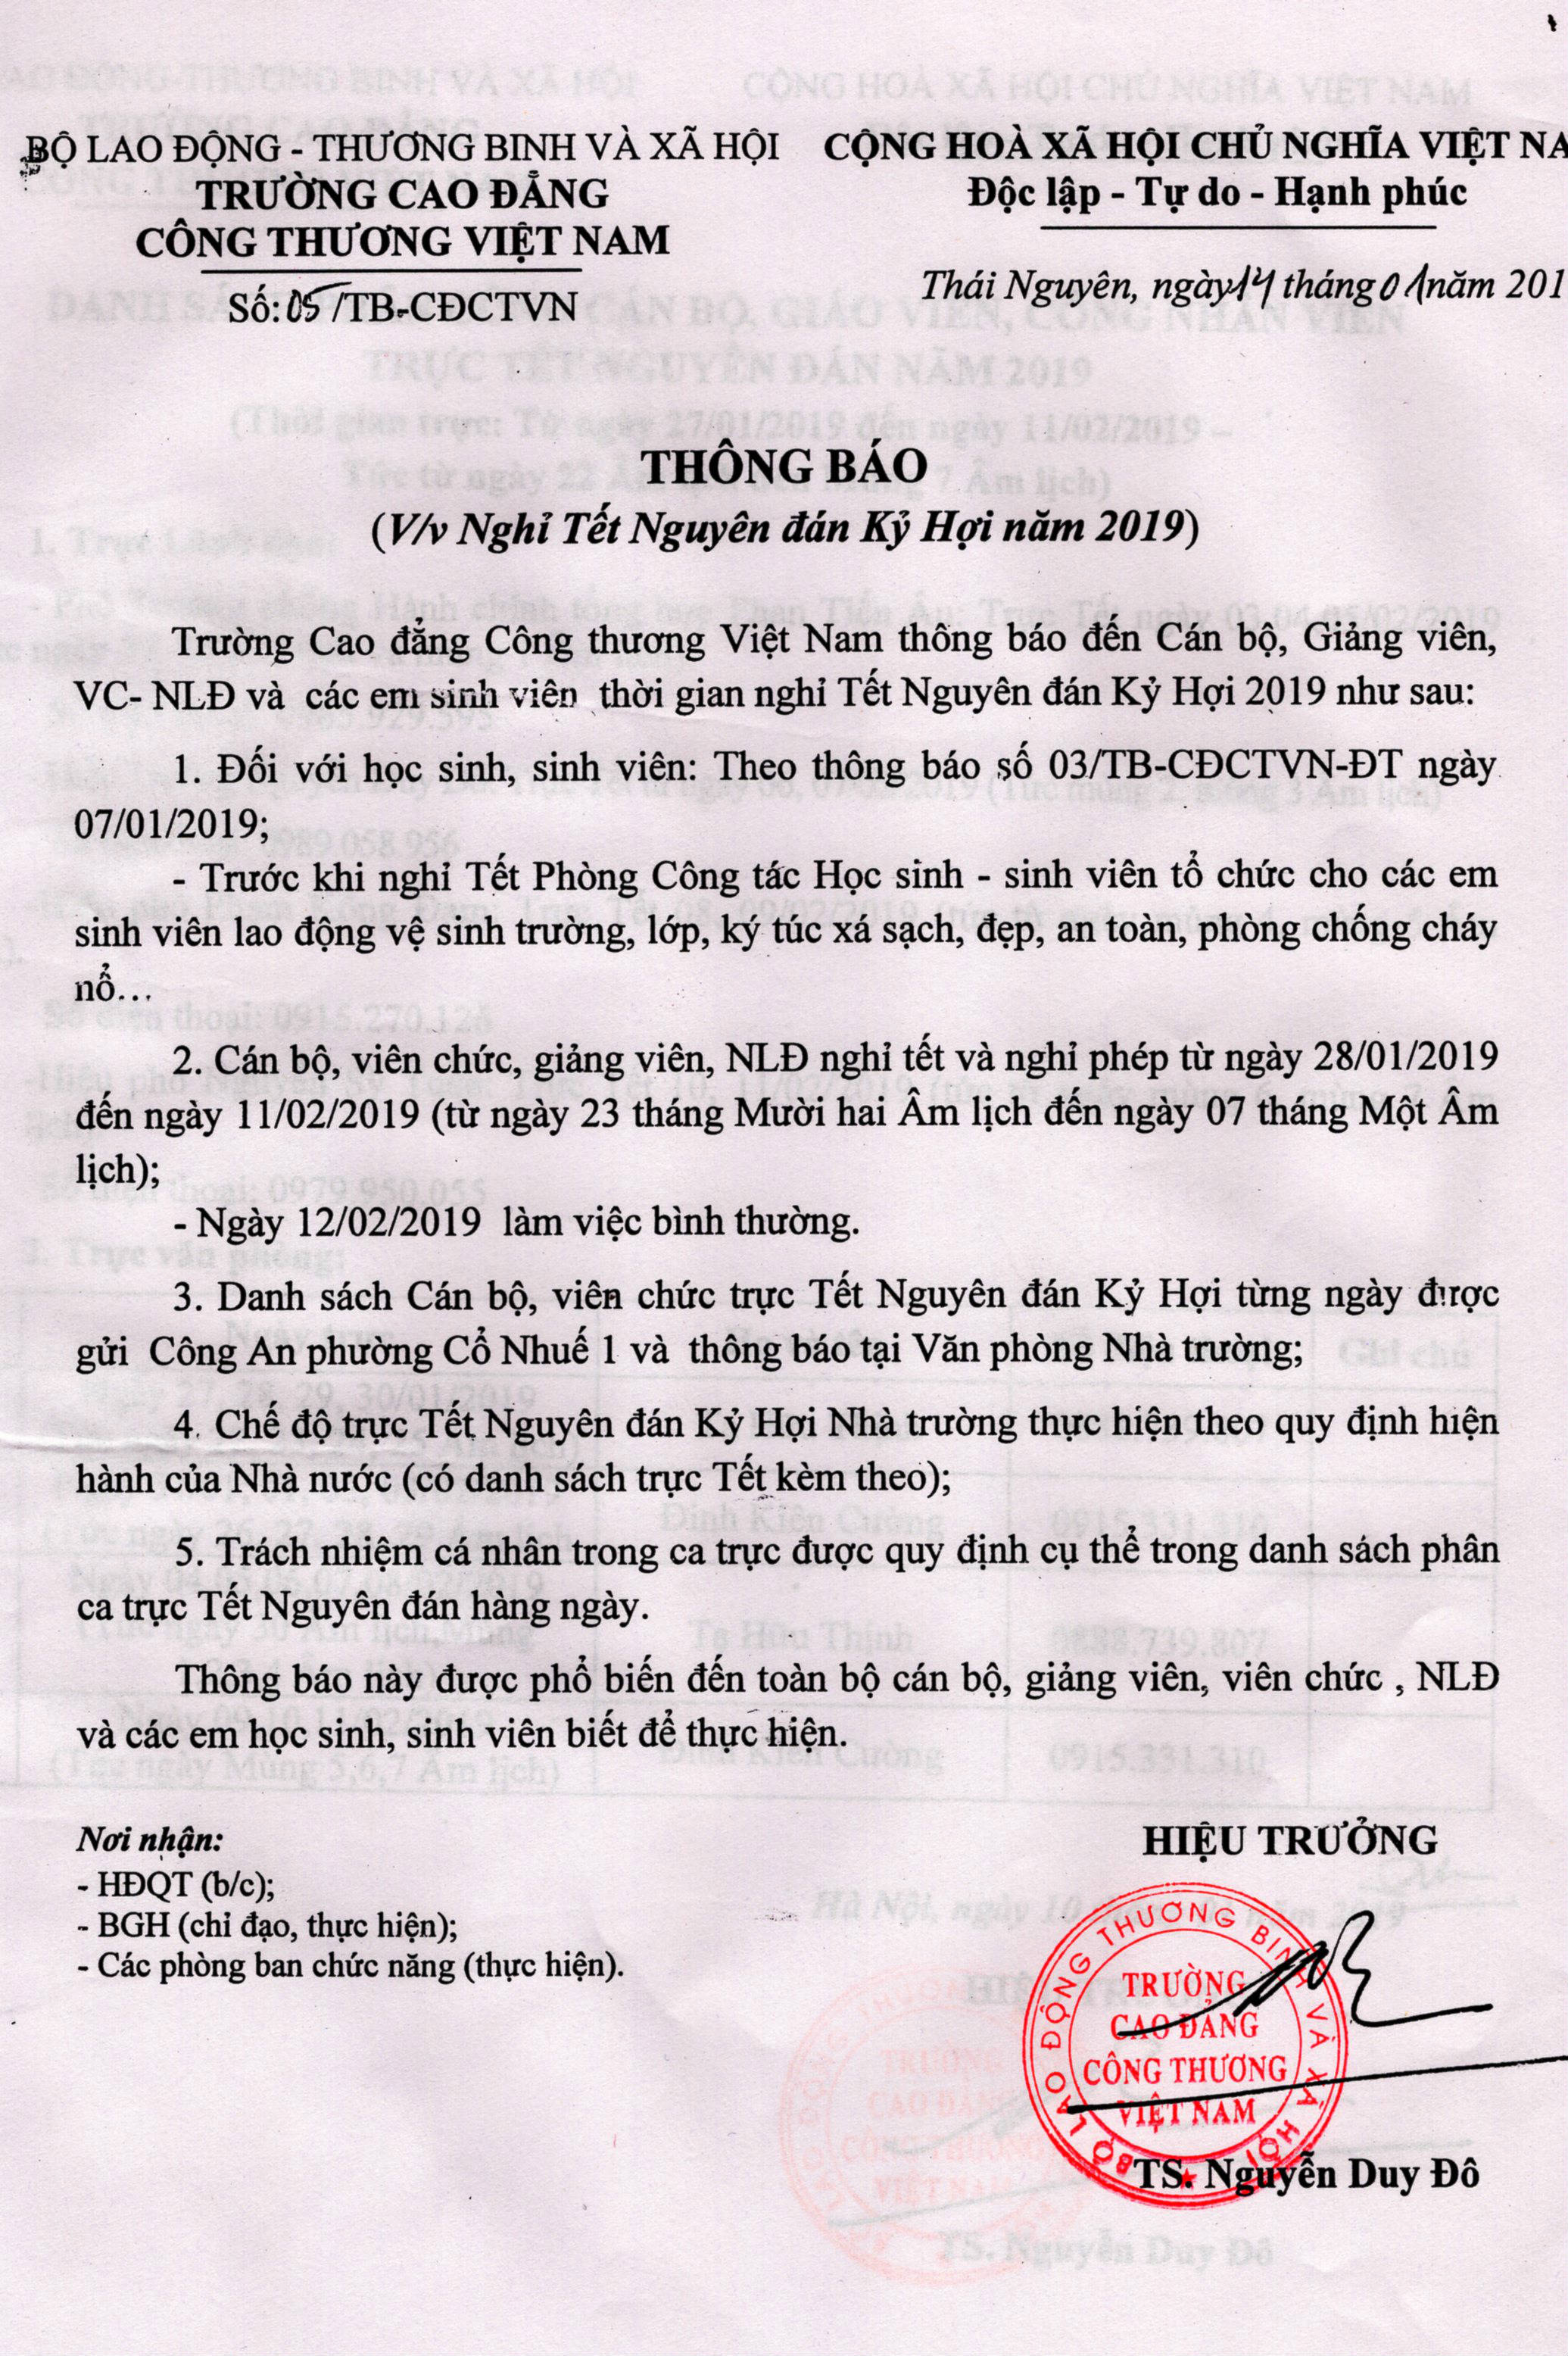 BỘ LAO ĐỘNG - THƯƠNG BINH VÀ XÃ HỘI
TRƯỜNG CAO ĐẲNG
CÔNG THƯƠNG VIỆT NAM
Số: 05/TB-CĐCTVN
CỘNG HOÀ XÃ HỘI CHỦ NGHĨA VIỆT NA
Độc lập - Tự do - Hạnh phúc
Thái Nguyên, ngày 14 tháng 01 năm 201
THÔNG BÁO
(V/v Nghỉ Tết Nguyên đán Kỷ Hợi năm 2019)
Trường Cao đẳng Công thương Việt Nam thông báo đến Cán bộ, Giảng viên,
VC- NLĐ và các em sinh viên thời gian nghỉ Tết Nguyên đán Kỷ Hợi 2019 như sau:
1. Đối với học sinh, sinh viên: Theo thông báo số 03/TB-CĐCTVN-ĐT ngày
07/01/2019;
- Trước khi nghỉ Tết Phòng Công tác Học sinh - sinh viên tổ chức cho các em
sinh viên lao động vệ sinh trường, lớp, ký túc xá sạch, đẹp, an toàn, phòng chống cháy
nổ...
2. Cán bộ, viên chức, giảng viên, NLĐ nghỉ tết và nghỉ phép từ ngày 28/01/2019
đến ngày 11/02/2019 (từ ngày 23 tháng Mười hai Âm lịch đến ngày 07 tháng Một Âm
lịch);
- Ngày 12/02/2019 làm việc bình thường.
3. Danh sách Cán bộ, viên chức trực Tết Nguyên đán Kỷ Hợi từng ngày được
gửi Công An phường Cổ Nhuế 1 và thông báo tại Văn phòng Nhà trường;
4. Chế độ trực Tết Nguyên đán Kỷ Hợi Nhà trường thực hiện theo quy định hiện
hành của Nhà nước (có danh sách trực Tết kèm theo);
5. Trách nhiệm cá nhân trong ca trực được quy định cụ thể trong danh sách phân
ca trực Tết Nguyên đán hàng ngày.
Thông báo này được phổ biến đến toàn bộ cán bộ, giảng viên, viên chức , NLĐ
và các em học sinh, sinh viên biết để thực hiện.
Nơi nhận:
- HĐQT (b/c);
- BGH (chỉ đạo, thực hiện);
- Các phòng ban chức năng (thực hiện).
HIỆU TRƯỞNG
BỘ LAO ĐỘNG THƯƠNG BINH VÀ XÃ HỘI
TRƯỜNG
CAO ĐẲNG
CÔNG THƯƠNG
VIỆT NAM
TS. Nguyễn Duy Đô